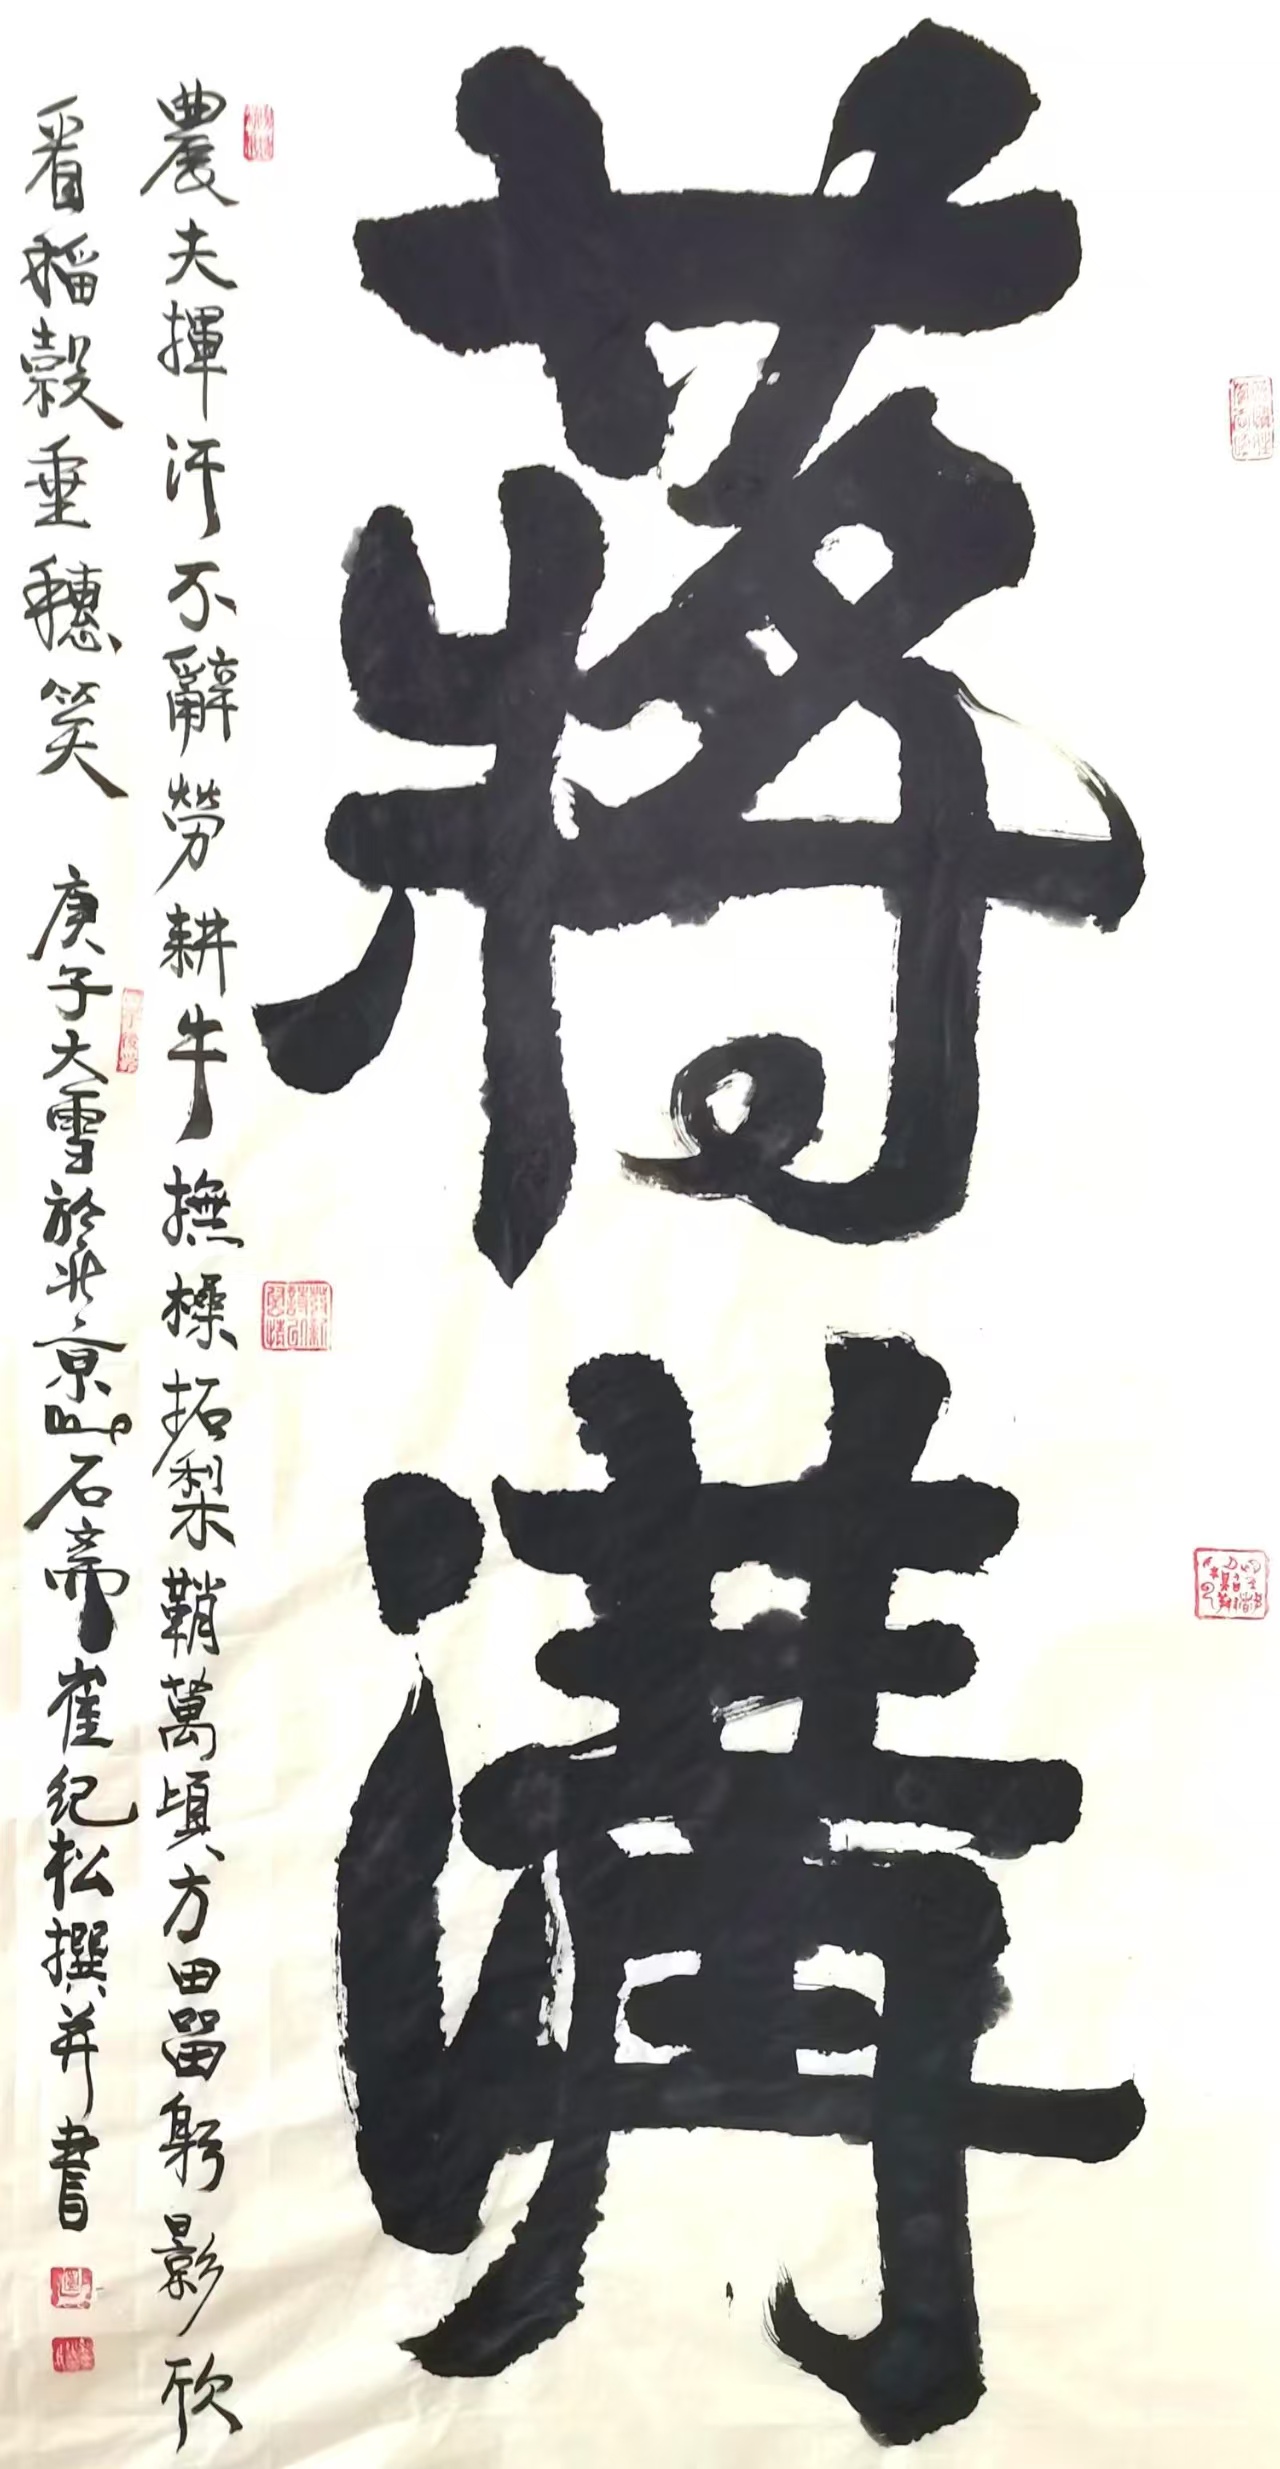 蔣溝
農夫揮汗不辭勞耕牛撫橾拓犁鞘萬頃方田留躬影欣
看稻穀垂穗笑 庚子大雪於北京石齋崔紀松撰并書